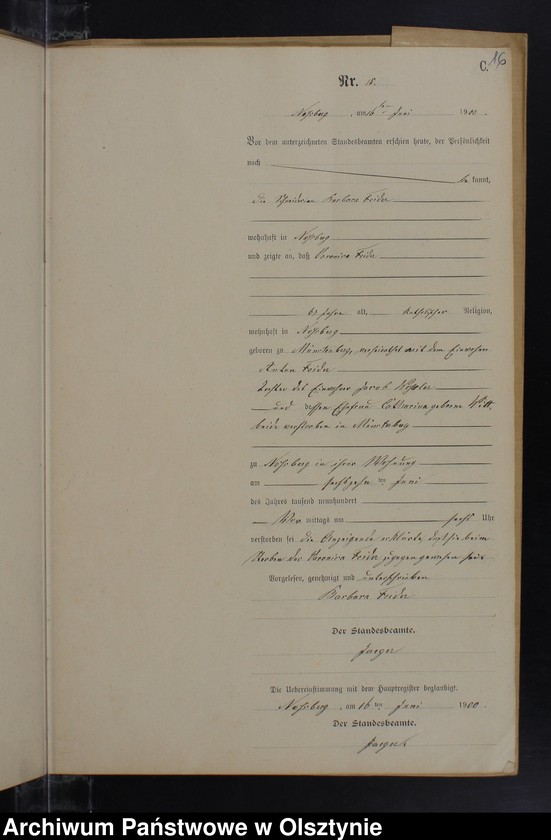 C. 16
Nr. 18.
Noßberg, am 16ten Juni 1900.
Vor dem unterzeichneten Standesbeamten erschien heute, der Persönlichkeit
nach
be kannt,
die Schneiderin Barbara Freida
wohnhaft in Noßberg
und zeigte an, daß Veronica Freida
63 Jahre alt, katholischer Religion,
wohnhaft in Noßberg
geboren zu Münsterberg, verheirathet mit dem Einwohner
Anton Freida
Tochter des Einwohner Jacob
und dessen Ehefrau Catharina geborene Witt,
beide verstorben in Münsterberg
zu Noßberg in ihrer Wohnung
am sechszehnten Juni
des Jahres tausend neunhundert
Vor mittags um sechs Uhr
verstorben sei die Anzeigende erklärte, daß sie beim
Sterben der Veronica Freida zugegen gewesen sei.
Vorgelesen, genehmigt und unterschrieben
Barbara Freida
Der Standesbeamte.
Jaeger
Die Uebereinstimmung mit dem Hauptregister beglaubigt.
Noßberg, am 16ten Juni 1900.
Der Standesbeamte.
Jaeger
Archiwum Państwowe w Olsztynie